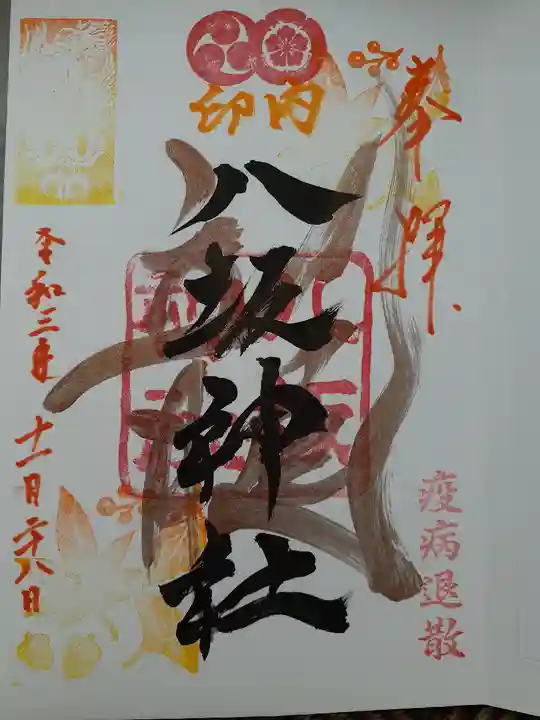 奉拝
疫病退散
内印
八坂神社
令和三年
十一月二十八日